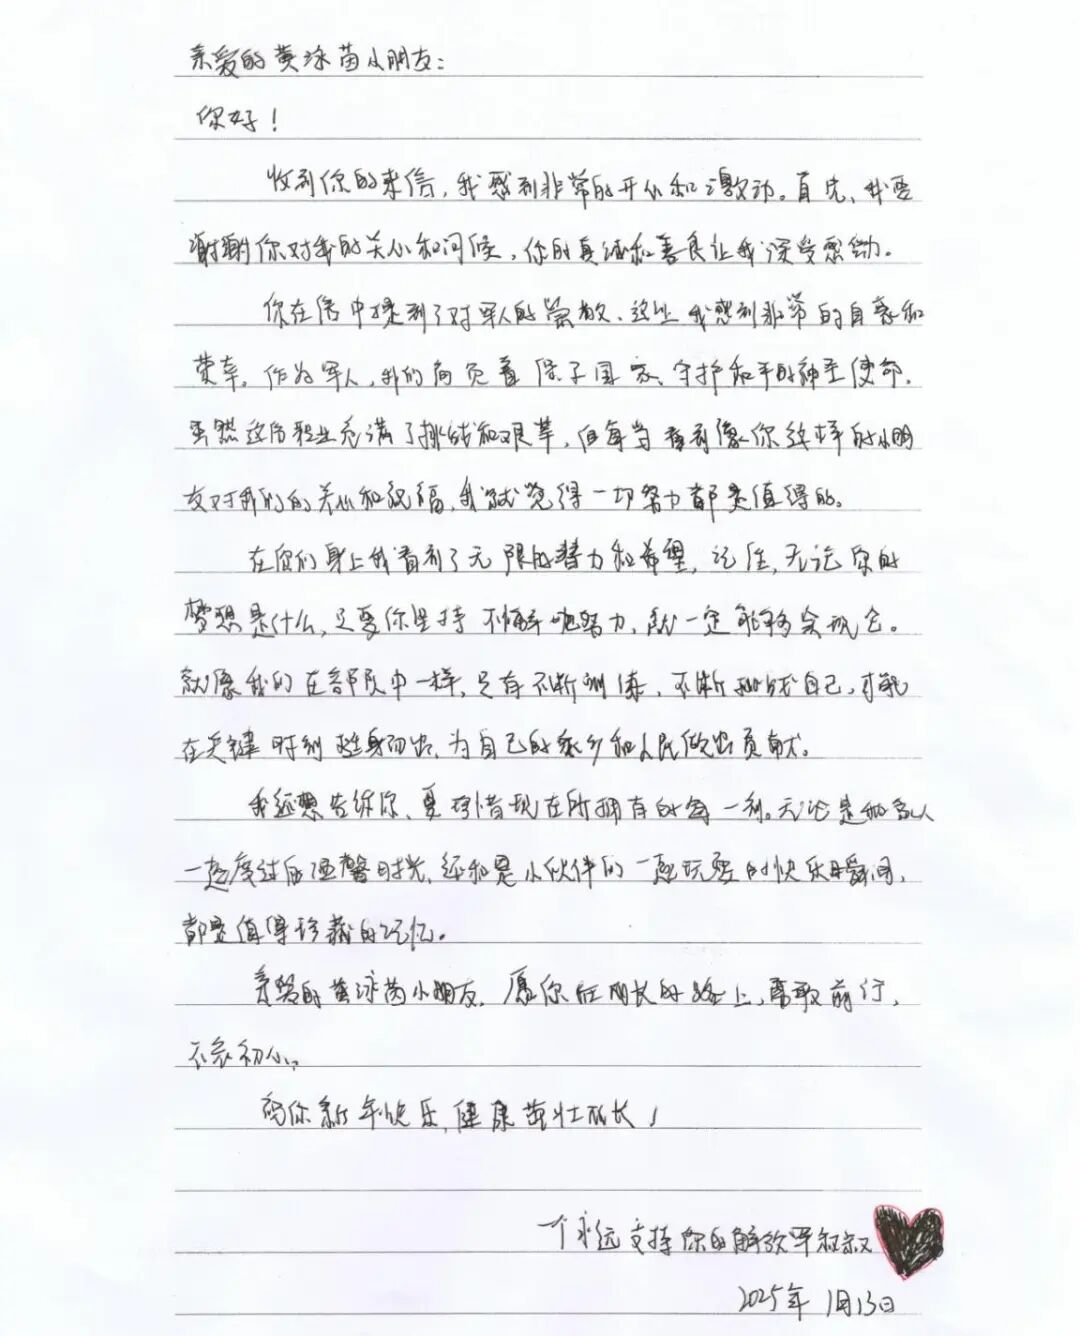 亲爱的黄泳茵小朋友：
你好！
收到你的来信，我感到非常的开心和激动。首先，我要
谢谢你对我的关心和问候，你的真诚和善良让我深受感动。
你在信中提到了对军人的崇敬，这让我感到非常的自豪和
荣幸。作为军人，我们肩负着保卫国家、守护和平的神圣使命，
虽然这份职业充满了挑战和艰苦，但每当看到像你这样的小朋
友对我们的关心和祝福，我就觉得一切努力都是值得的。
在你们身上我看到了无限的潜力和希望，记住，无论你的
梦想是什么，只要你坚持不懈地努力，就一定能够实现它。
就像我们在部队中一样，只有不断训练，不断挑战自己，才能
在关键时刻挺身而出，为自己的家乡和人民做出贡献。
我还想告诉你，要珍惜现在所拥有的每一刻。无论是和家人
一起度过的温馨时光，还是和小伙伴们一起玩耍的快乐瞬间，
都是值得珍藏的记忆。
亲爱的黄泳茵小朋友，愿你在成长的路上，勇敢前行，
不忘初心。
祝你新年快乐，健康茁壮成长！
一个永远支持你的解放军叔叔
2025年1月13日